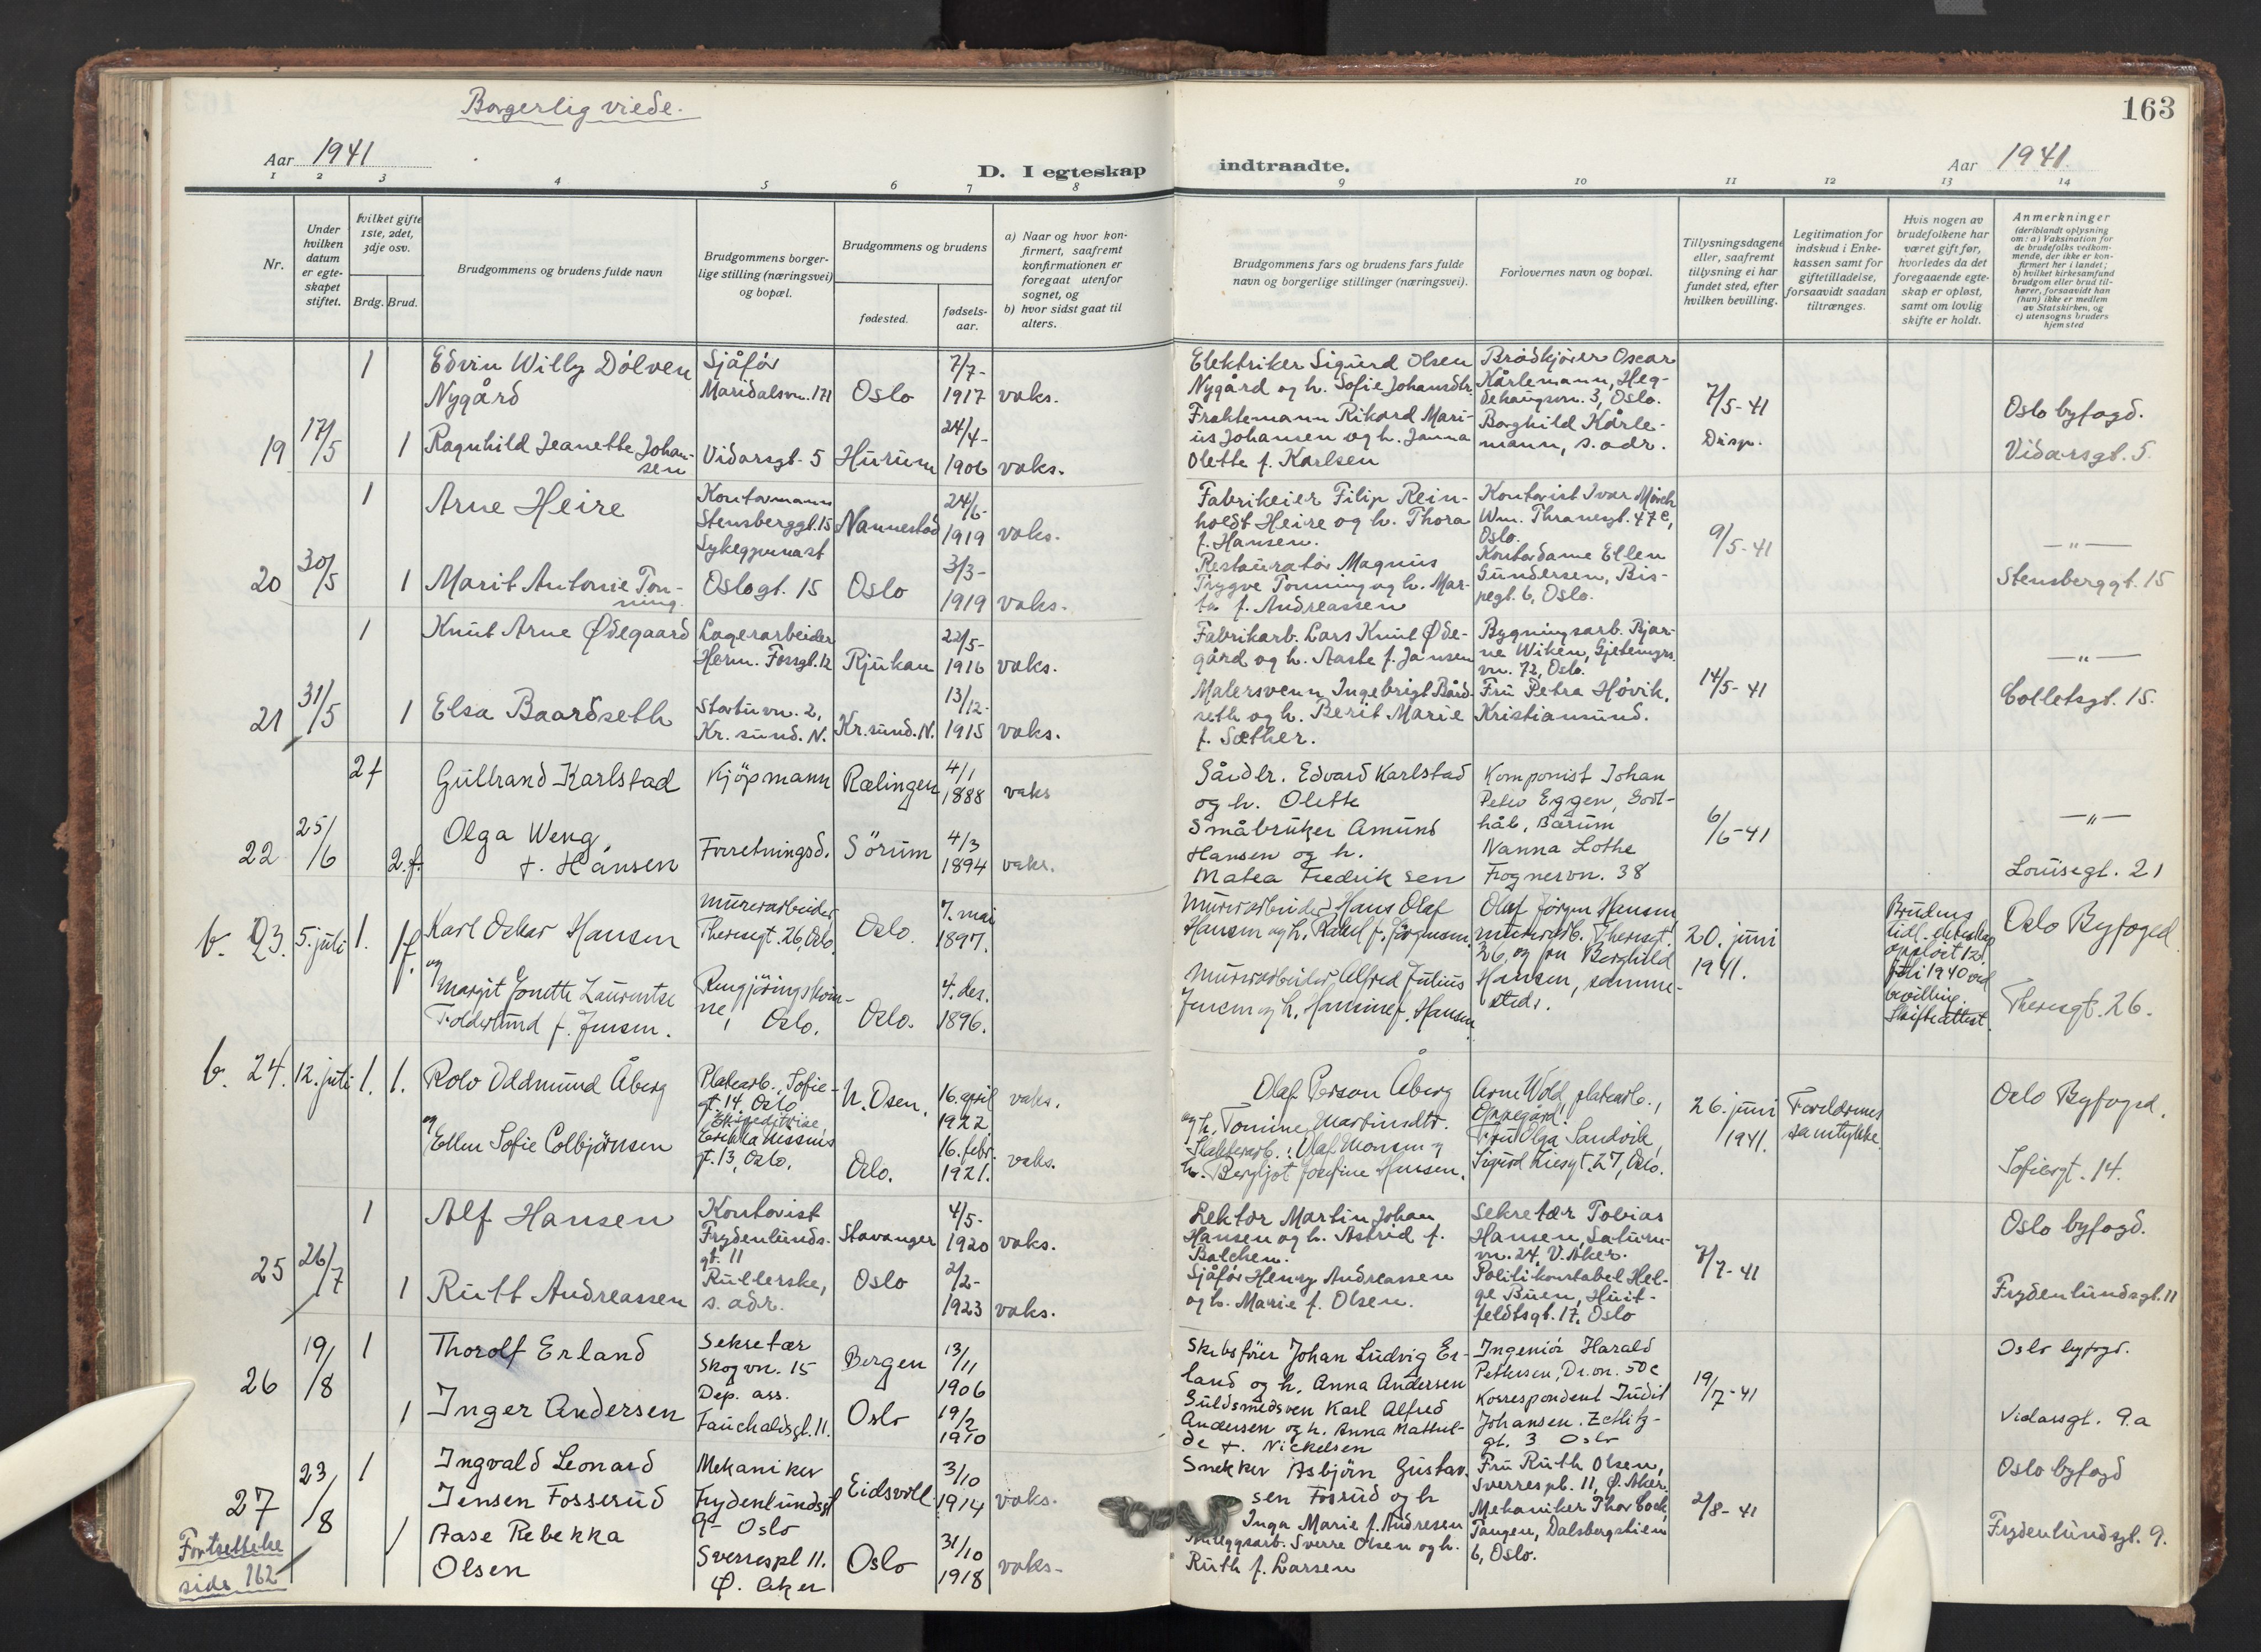 Borgerlig viede.
163
Aar 1941
D. I egteskap
indtraadte.
Aar 1941.
1 2 3 4 5 6 7 8 9 10 11 12 13 14
Nr.
Under hvilken datum er egteskapet stiftet.
Hvilket gifte 1ste, 2det, 3dje osv.
Brdg. Brud.
Brudgommens og brudens fulde navn
Brudgommens borgerlige stilling (næringsvei) og bopæl.
Brudgommens og brudens
fødested.
fødselsaar.
a) Naar og hvor konfirmert, saafremt konfirmationen er foregaat utenfor sognet, og
b) hvor sidst gaat til alters.
Brudgommens fars og brudens fars fulde navn og borgerlige stillinger (næringsvei).
Forlovernes navn og bopæl.
Tillysningsdagene eller, saafremt tillysning ei har fundet sted, efter hvilken bevilling.
Legitimation for indskud i Enkekassen samt for giftetilladelse, forsaavidt saadan tiltrænges.
Hvis nogen av brudefolkene har været gift før, hvorledes da det foregaaende egteskap er opløst, samt om lovlig skifte er holdt.
Anmerkninger
(deriblandt oplysning om: a) Vaksination for de brudefolks vedkommende, der ikke er konfirmert her i landet; b) hvilket kirkesamfund brudgom eller brud tilhører, forsaavidt han (hun) ikke er medlem av Statskirken, og c) utensogns bruders hjemsted
19
17/5
1
Edvin Willy Dölven
Nygård
Sjåför
Maridalsvn. 171
Oslo
7/7-
1917
vaks.
Elektriker Sigurd Olsen
Nygård og h. Sofie Johansdtr.
Brödkjörer Oscar
Kårlemann, Heg-
dehaugsvn. 3, Oslo.
7/5-41
Disp.
Oslo byfogd.
1
Ragnhild Jeanette Johan-
sen
Vidarsgt. 5
Hurum
24/4-
1906
vaks.
Fraktemann Rikard Mari-
us Johansen og h. Janna
Olette f. Karlsen
Borghild Kårle-
mann, s. adr.
Vidarsgt. 5.
20
30/5
1
Arne Heire
Kontormann
Stensberggt. 15
Nannestad
24/6-
1919
vaks.
Fabrikeier Filip Rein-
holdt Heire og h. Thora
f. Hansen.
Kontorist Ivar Mörch
Wm. Thranesgt. 47 e,
Oslo.
9/5-41
—"—
1
Marit Antonie Ton-
ning.
Sykegymnast
Oslogt. 15
Oslo
3/3-
1919
vaks.
Restauratör Magnus
Trygve Tonning og h. Mar-
ta f. Andreassen
Kontordame Ellen
Gundersen, Bis-
pegt. 6, Oslo.
Stensberggt. 15
21
31/5
1
Knut Arne Ødegaard
Lagerarbeider
Herm. Fossgt. 12
Rjukan
22/5-
1916
vaks.
Fabrikarb. Lars Knut Øde-
gård og h. Aaste f. Jansen
Bygningsarb. Bjar-
ne Wiken, Gjetemyrs
vn. 72, Oslo.
14/5-41
—"—
1
Elsa Baardseth
vn. 2,
Kr. sund. N.
Kr. sund. N.
13/12-
1915
vaks.
Malersvenn Ingebrigt Bård-
seth og h. Berit Marie
f. Sæther.
Fru Petra Hövik,
Kristiansund.
Colletsgt. 15.
22
25/6
2 f
Gulbrand Karlstad
Kjöpmann
Rælingen
4/1
1888
vaks
Gårdbr. Edvard Karlstad
og h. Olette
Komponist Johan
Peter Eggen, Godt-
håb, Bærum
6/6-41
—"—
2. f.
Olga Weng
f. Hansen
Forretningsd.
Sörum
4/3
1894
vaks.
Småbruker Amund
Hansen og h.
Matea Fredriksen
Nanna Lothe
Frognervn. 38
Louisegt. 21
b. 23.
5. juli
1.
1 f.
Karl Oskar Hansen
og
Murerarbeider,
Theresgt. 26, Oslo.
Oslo.
7. mai
1897.
Murerarbeider Hans Olaf
Hansen og h. Rakel f. Jörgensen.
Olaf Jörgen Hansen
murerarb. Theresgt.
26, og fru Borghild
Hansen, samme-
steds.
20. juni
1941.
Brudens
tidl. ekteskap
oplöst 12.
juli 1940 ved
bevilling.
Skifteattest.
Oslo Byfoged
Margit Jonette Laurentse
Folderlund f. Jensen.
Rengjöringskvin-
ne, Oslo.
Oslo.
4. des.
1896.
Murerarbeider Alfred Julius
Jensen og h. f. Hansen.
Theresgt. 26.
b. 24.
12. juli
1.
1.
Rolv Oddmund Åberg
og
Platearb., Sofie-
gt. 14. Oslo
N. Osen.
16. april
1922
vaks.
Olaf Person Åberg
og h. Tomine Martinsdtr.
Arne Wold, platearb.,
Oppegård.
26. juni
1941.
Foreldrenes
samtykke
Oslo Byfoged.
Ellen Sofie Colbjörnsen
Ekspeditrise,
gt. 13, Oslo.
Oslo.
16. febr.
1921.
vaks.
Olaf Monsen og
h. Bergljot Josefine Hansen.
Fru Olga Sandvik,
gt. 27, Oslo.
Sofiesgt. 14.
25
26/7
1
Alf Hansen
Kontorist
Frydenlunds-
gt. 11
Stavanger
4/5-
1920
vaks.
Lektor Martin Johan
Hansen og h. Astrid f.
Balchen.
Sekretær Tobias
Hansen, Saturn-
vn. 24, V. Aker.
7/7-41
Oslo byfogd.
1
Rutt Andreassen
Rullerske,
s. adr.
Oslo
2/2-
1923
vaks.
Sjåför Henry Andreassen
og h. Marie f. Olsen.
Politikonstabel Hel-
ge Buen, Huit-
feldtsgt. 17, Oslo
Frydenlundsgt. 11
26
19/8
1
Thorolf Erland
Sekretær
Skogvn. 15
Bergen
13/11
1906
Skibsförer Johan Ludvig Er-
land og h. Anna Andersen
Ingeniör Harald
Pettersen, Dr.vn. 50 c
19/7-41
Oslo byfogd.
1
Inger Andersen
Dep. ass.
Fauchaldsgt. 11.
Oslo
19/2
1910
Guldsmedsven Karl Alfred
Andersen og h. Anna Mathil-
de f. Nickelsen
Korrespondent Judit
Johansen. Zetlitz-
gt. 3 Oslo
Vidarsgt. 9.a
27
23/8
1
Ingvald Leonard
Jensen Fosserud
Mekaniker
Frydenlundsgt
9- Oslo
Eidsvoll.
3/10
1914
vaks.
Snekker Asbjörn Gustav-
sen Fosrud og h
Inga Marie f. Andresen
Fru Ruth Olsen,
Sverrespl. 11, Ø. Aker.
2/8-41
Oslo byfogd
1
Aase Rebekka
Olsen
Sverrespl 11.
Ø. Aker
Oslo
31/10
1918
vaks-
Anleggsarb. Sverre Olsen og h.
Ruth f. Larsen
Mekaniker Thor Cock
Tangen, Dalsbergstien
6, Oslo.
Frydenlundsgt. 9.
Fortsettelse
side 162